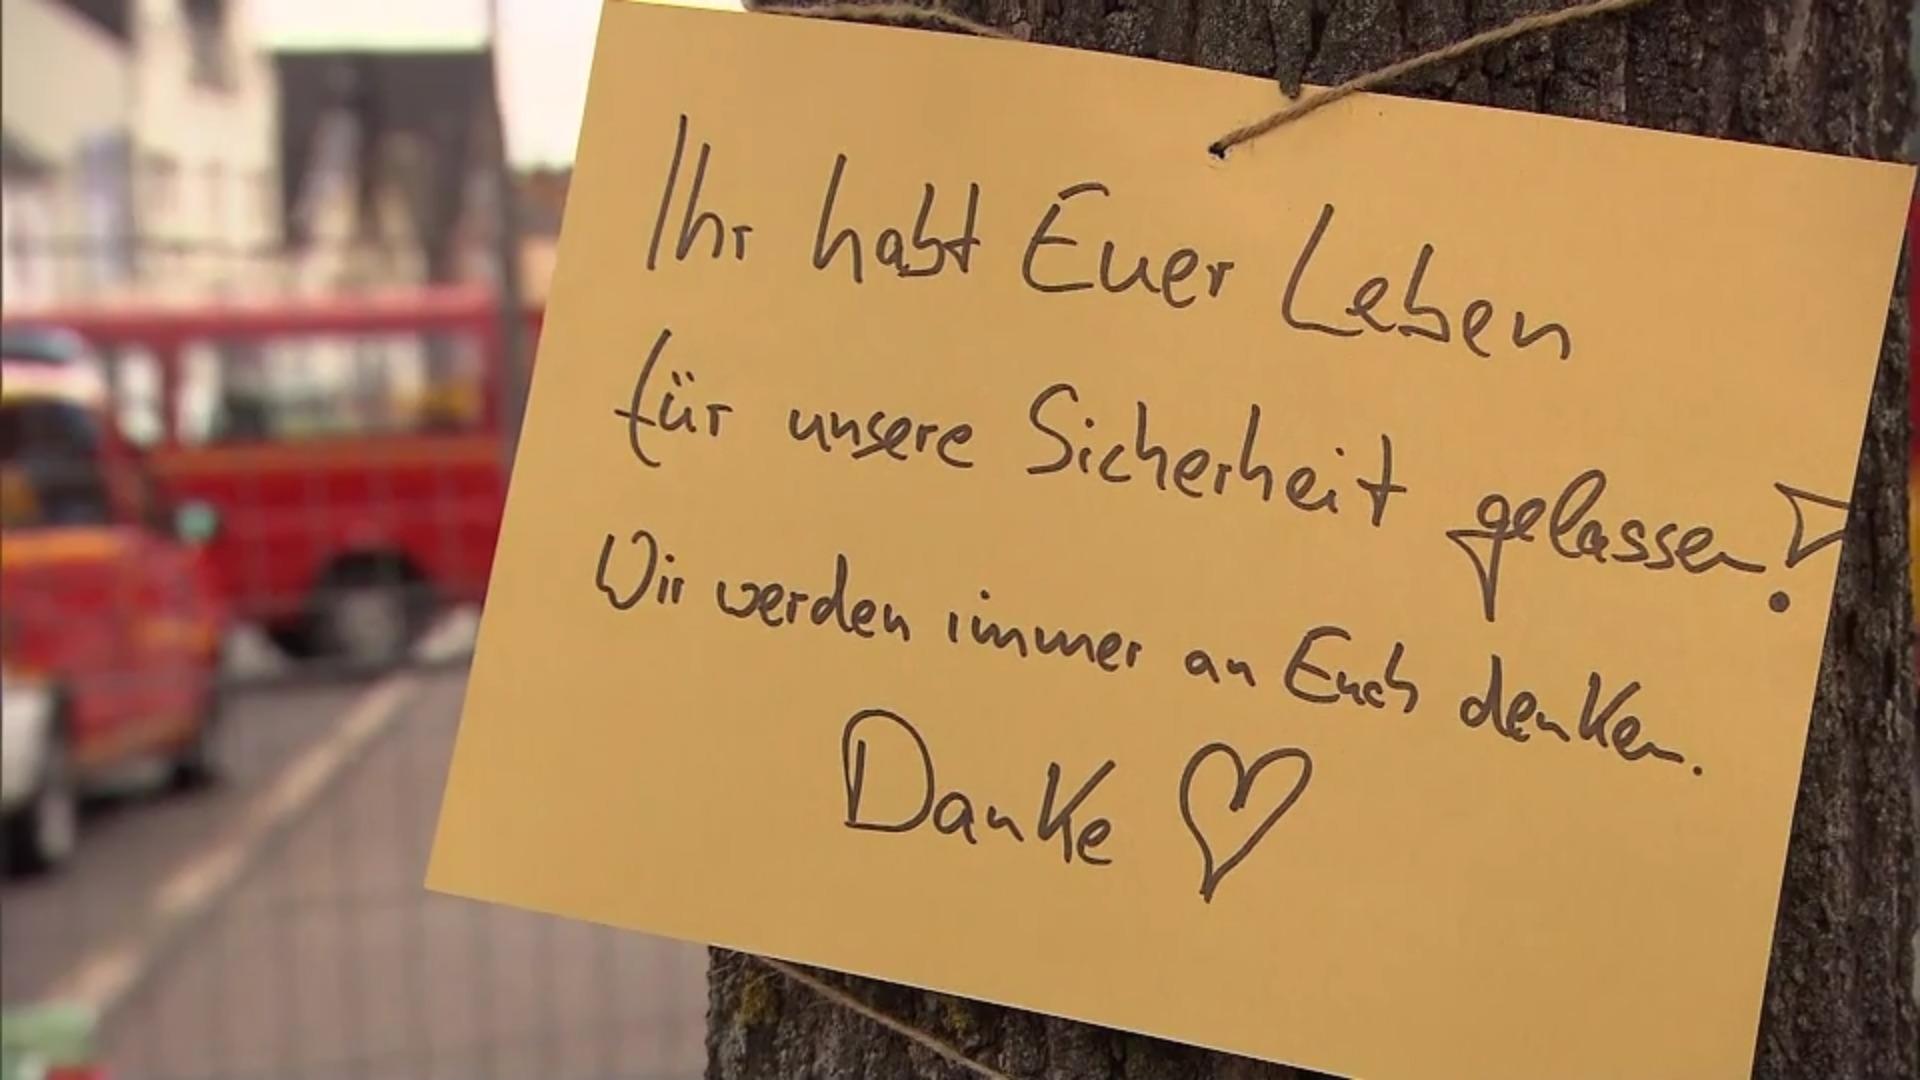 Ihr habt Euer Leben
für unsere Sicherheit gelassen!
Wir werden immer an Euch denken.
Danke ♡